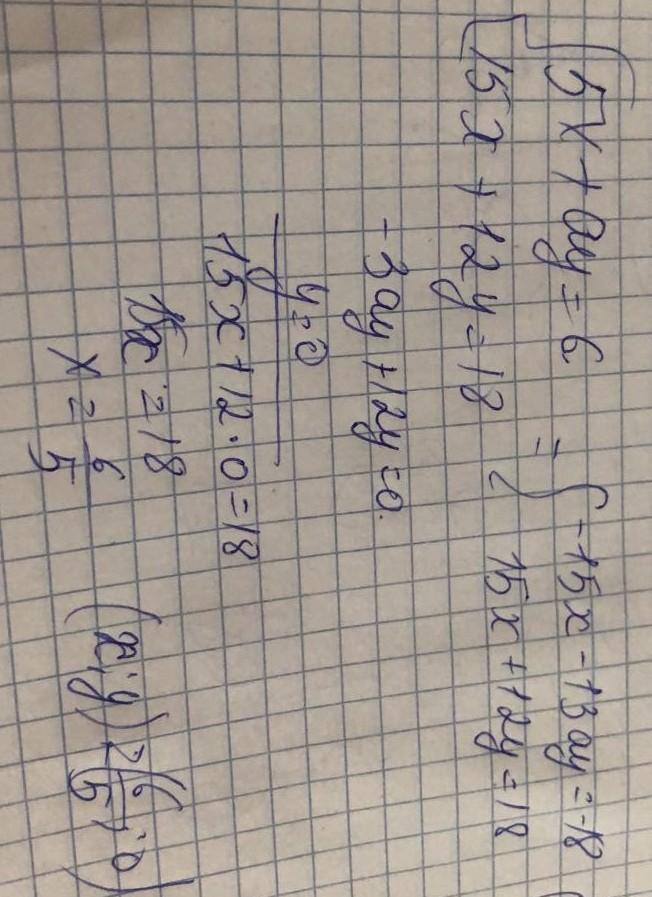 {5x + ay = 6
15x + 12y = 18
= {-15x - 13ay = -18
15x + 12y = 18
-3ay + 12y = 0.
y = 0
15x + 12 · 0 = 18
15x = 18
x = 6/5
(x; y) = (6/5; 0)